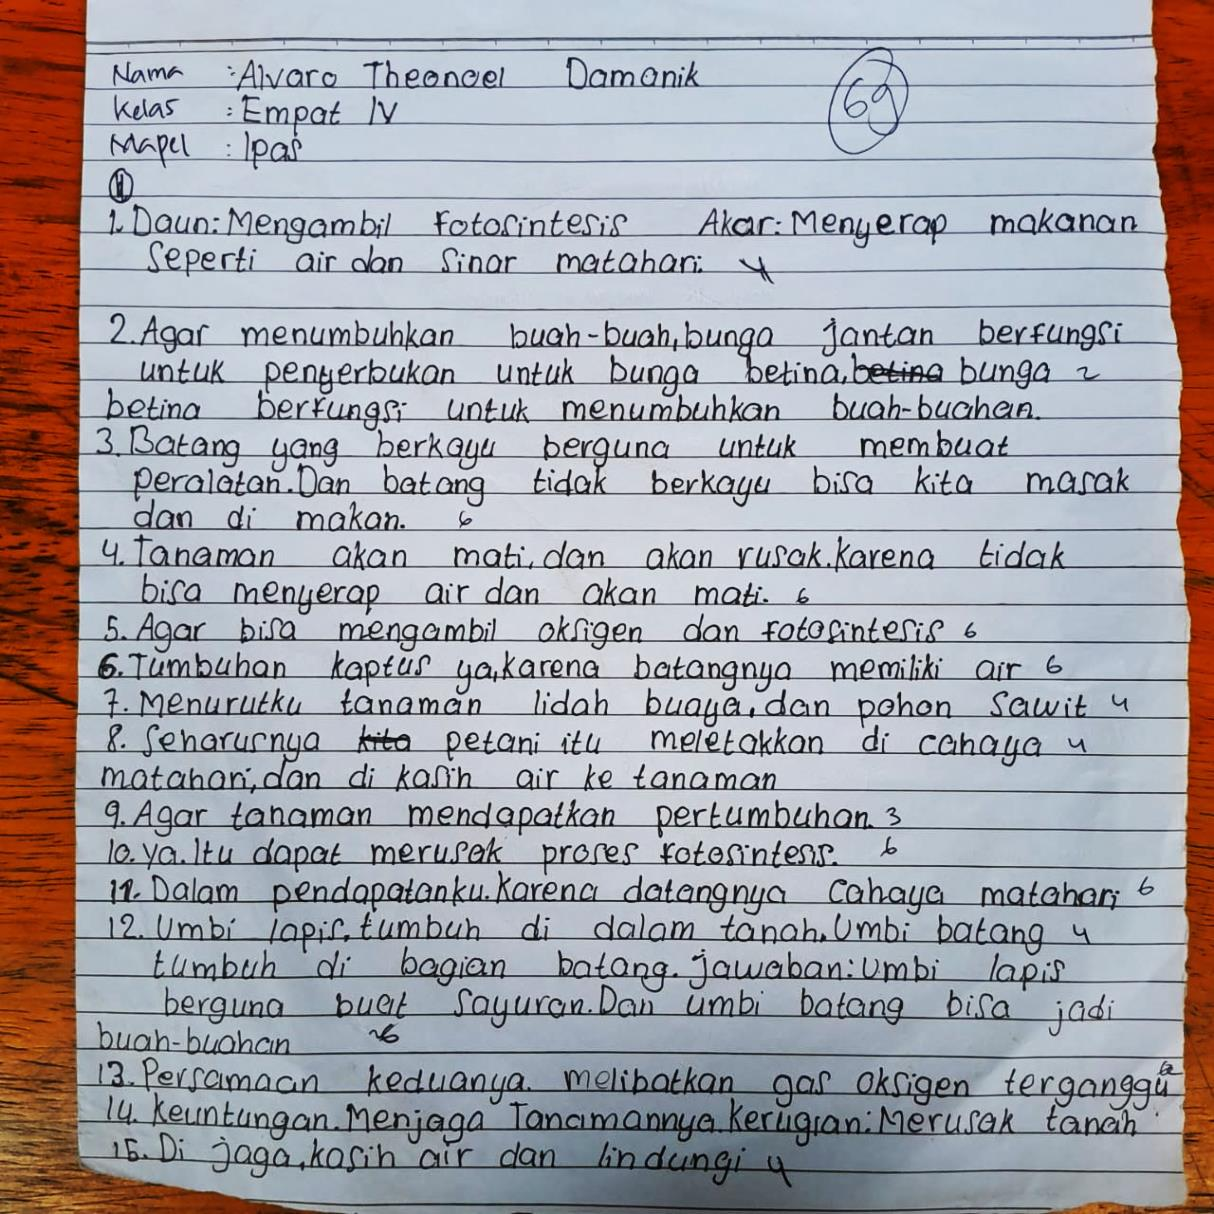 Nama : Alvaro Theonoel Damanik
Kelas : Empat IV
69
Mapel : Ipas
II
1. Daun: Mengambil fotosintesis Akar: Menyerap makanan
seperti air dan sinar matahari. 4
2. Agar menumbuhkan buah-buah, bunga jantan berfungsi
untuk penyerbukan untuk bunga betina, betina bunga 2
betina berfungsi untuk menumbuhkan buah-buahan.
3. Batang yang berkayu berguna untuk membuat
peralatan. Dan batang tidak berkayu bisa kita masak
dan di makan. 6
4. Tanaman akan mati, dan akan rusak. karena tidak
bisa menyerap air dan akan mati. 6
5. Agar bisa mengambil oksigen dan fotosintesis 6
6. Tumbuhan kaptus ya, karena batangnya memiliki air 6
7. Menurutku tanaman lidah buaya, dan pohon sawit 4
8. Seharusnya kita petani itu meletakkan di cahaya 4
matahari, dan di kasih air ke tanaman
9. Agar tanaman mendapatkan pertumbuhan. 3
10. ya. Itu dapat merusak proses fotosintesis. 6
11. Dalam pendapatanku. Karena datangnya cahaya matahari 6
12. Umbi lapis, tumbuh di dalam tanah. Umbi batang 4
tumbuh di bagian batang. jawaban: Umbi lapis
berguna buat sayuran. Dan umbi batang bisa jadi
buah-buahan 6
13. Persamaan keduanya. melibatkan gas oksigen terganggu
14. Keuntungan. Menjaga Tanamannya. Kerugian: Merusak tanah
15. Di jaga, kasih air dan lindungi 4